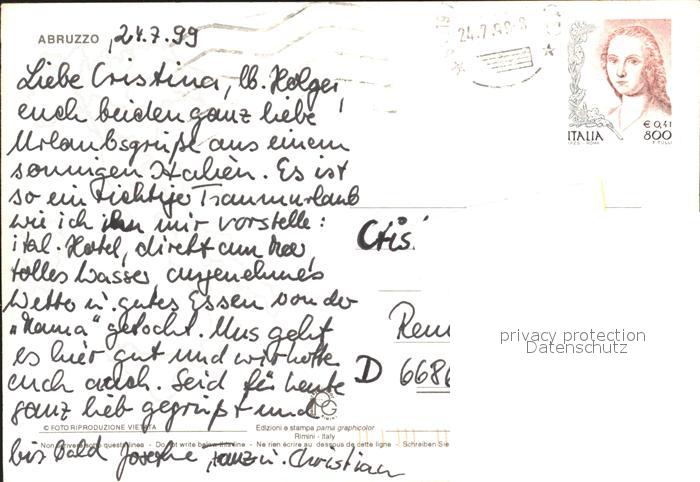 ABRUZZO, 24.7.99
24.7.99-8
Liebe Cristina, lb. Holger,
euch beiden ganz liebe
Urlaubsgrüße aus einem
sonnigen Italien. Es ist
so ein richtiger Traumurlaub
wie ich ihn mir vorstelle:
ital. Hotel, direkt am Meer
tolles Wasser angenehmes
Wetter u. gutes Essen von der
„Mama" gekocht. Uns geht
es hier gut und wir hoffe
euch auch. Seid für heute
ganz lieb gegrüßt und
bis bald Josefine, Franz u. Christian
€ 0,41
ITALIA 800
Cris
D 6686
privacy protection
Datenschutz
© FOTO RIPRODUZIONE VIETATA
Edizioni e stampa pama graphicolor
Rimini - Italy
Non scrivere sotto questa linea - Do not write below this line - Ne rien écrire au dessous de cette ligne - Schreiben Sie